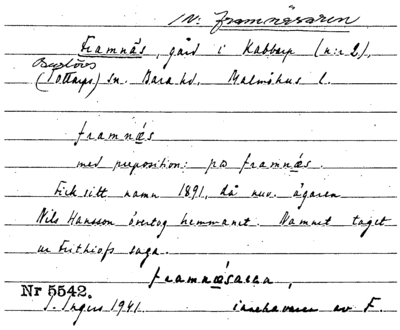 In: framnäsaren
Framnäs, gård i Kabbarp (n:r 2),
Burlövs
(Tottarps) sn. Bara hd. Malmöhus l.
framnæs
med preposition: pæ framnæs.
Fick sitt namn 1891, då nuv. ägaren
Nils Hansson övertog hemmanet. Namnet taget
ur Frithiofs saga.
framnæsaren,
Nr 5542.
I. Ingers 1941. innehavaren av F.